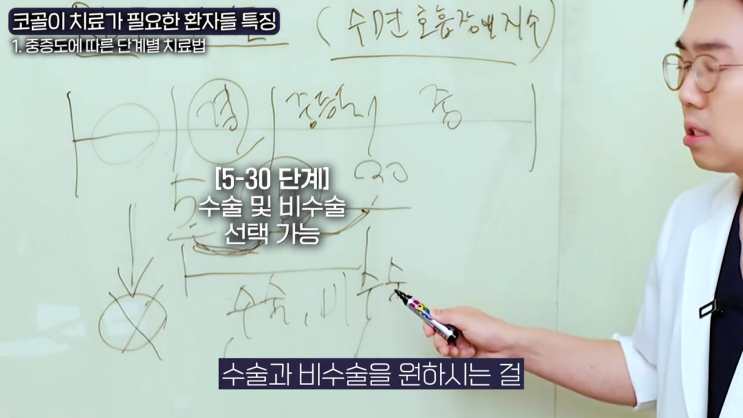 코골이 치료가 필요한 환자들 특징
1. 중증도에 따른 단계별 치료법
(수면호흡장애지수)
경 중등도 중
5 30
[5-30 단계]
수술 및 비수술
선택 가능
수술, 비수술
수술과 비수술을 원하시는 걸